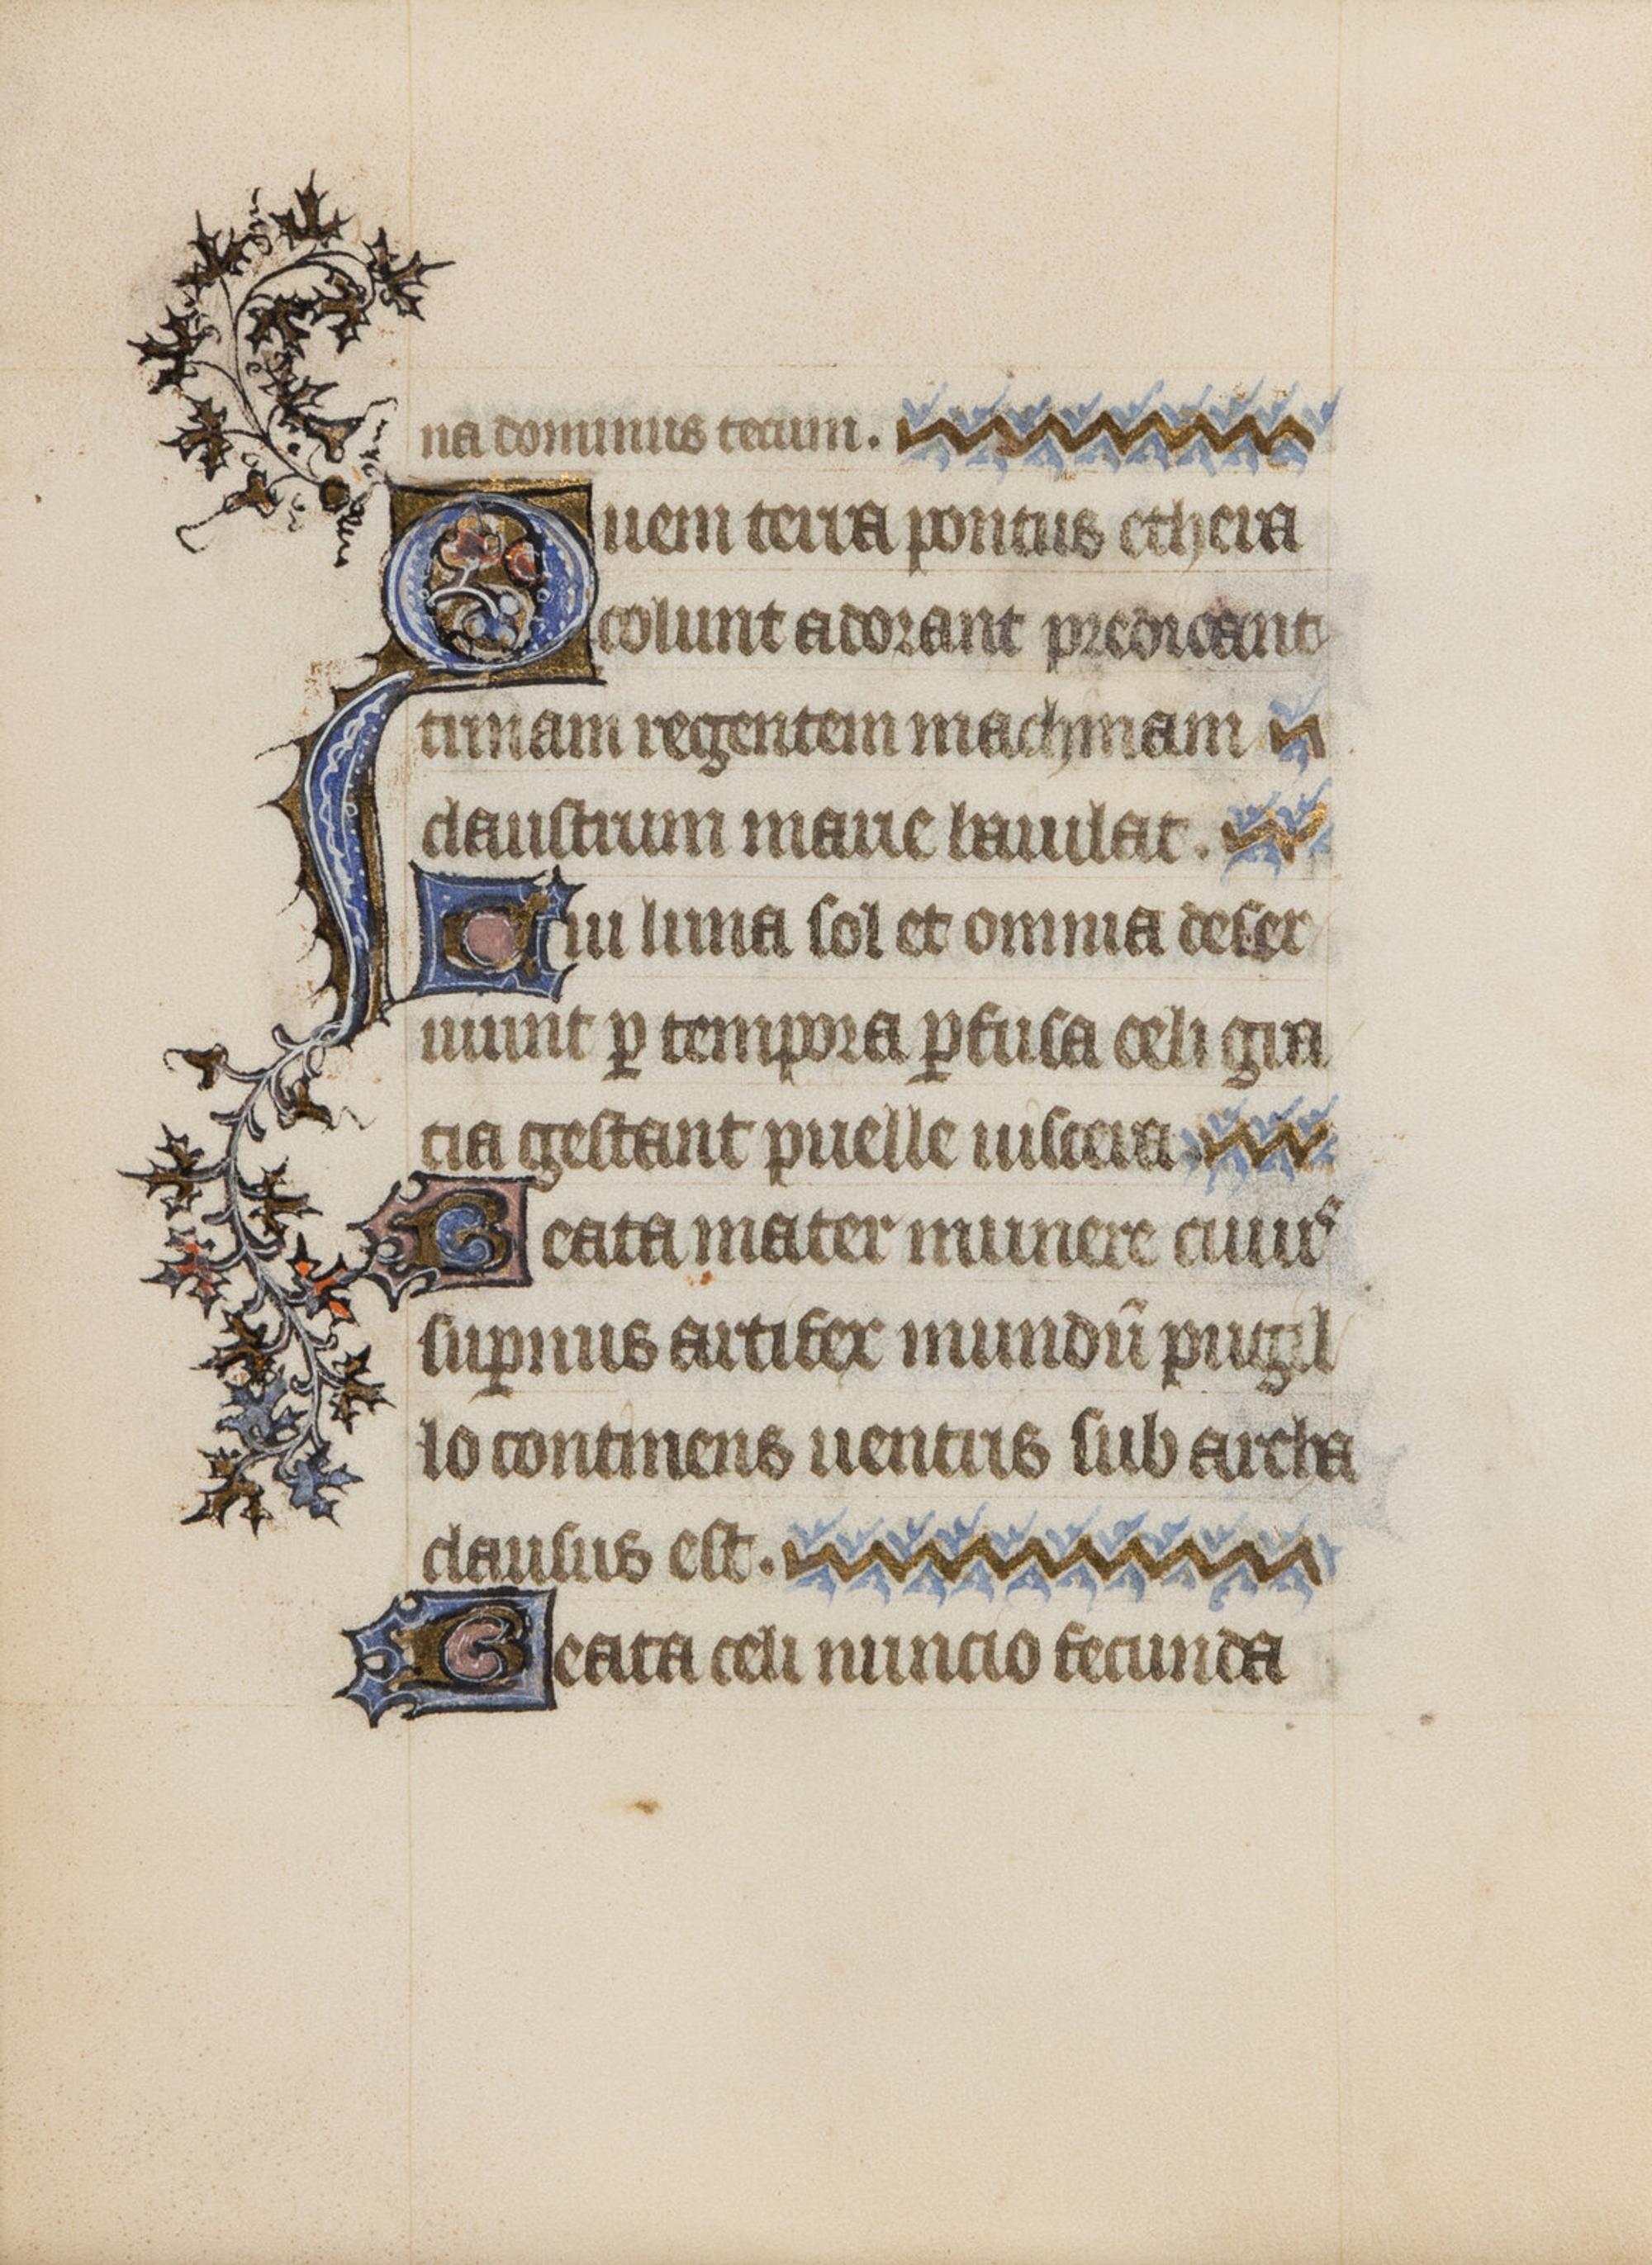 na dominus tecum.
Quem terra pontus ethera
colunt adorant predicant
trinam regentem machinam
claustrum marie baiulat.
Cui luna sol et omnia deser
uiunt ꝑ tempora ꝑfusa celi gra
cia gestant puelle uiscera
Beata mater munere cuiuꝰ
suꝑnus artifex mundū pugil
lo continens uentris sub archa
clausus est.
Beata celi nuncio fecunda